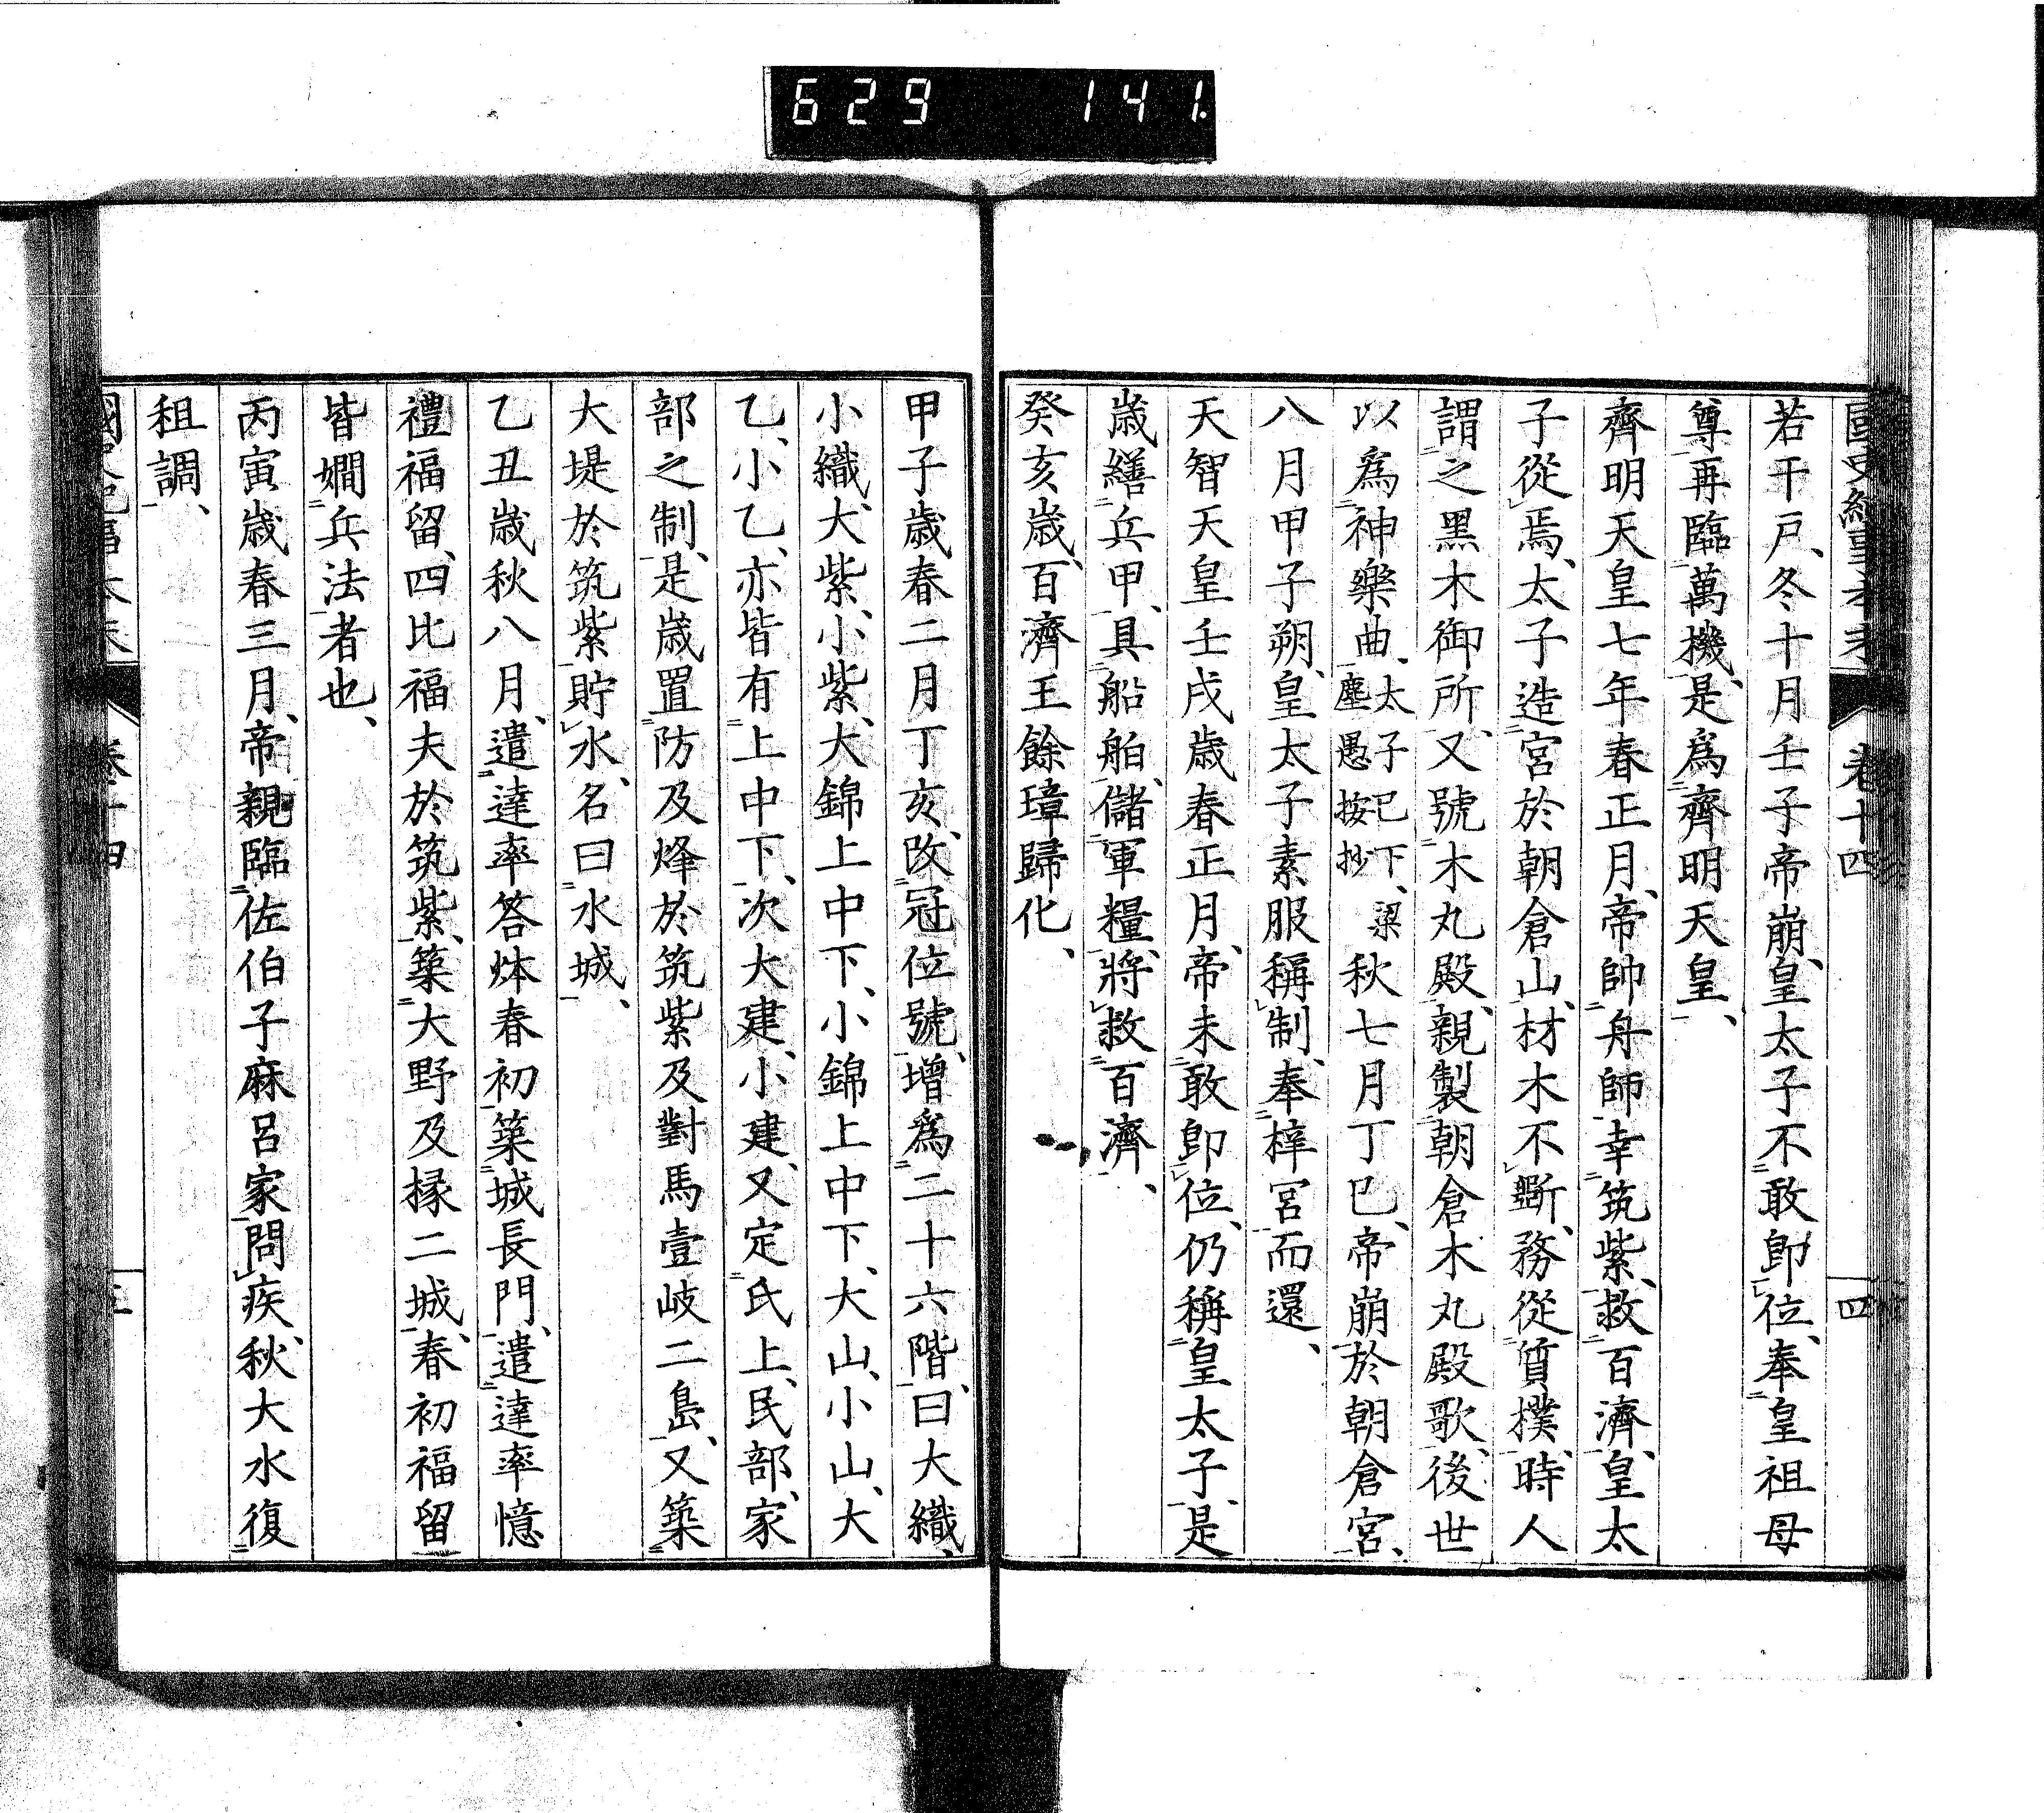 629 141.
卷十四
四
若干戸、冬十月壬子帝崩、皇太子不敢卽位、奉皇祖母
尊再臨萬機、是爲齊明天皇、
齊明天皇七年春正月、帝帥舟師幸筑紫、救百濟、皇太
子從焉、太子造宮於朝倉山、材木不斲、務從質撲、時人
謂之黑木御所、又號木丸殿、親製朝倉木丸殿歌、後世
以爲神樂曲、太子已下、梁塵愚按抄秋七月丁巳、帝崩於朝倉宮、
八月甲子朔、皇太子素服稱制、奉梓宮而還、
天智天皇壬戌歲春正月、帝未敢卽位、仍稱皇太子、是
歲繕兵甲、具船舶、儲軍糧、將救百濟、
癸亥歲、百濟王餘璋歸化、
甲子歲春二月丁亥、改冠位號、增爲二十六階、曰大織、
小織、大紫、小紫、大錦上中下、小錦上中下、大山、小山、大
乙、小乙、亦皆有上中下、次大建、小建、又定氏上、民部、家
部之制、是歲置防及烽於筑紫及對馬壹岐二島、又築
大堤於筑紫貯水、名曰水城、
乙丑歲秋八月、遣達率答㶱春初築城長門、遣達率憶
禮福留、四比福夫於筑紫、築大野及椽二城、春初福留
皆嫺兵法者也、
丙寅歲春三月、帝親臨佐伯子麻呂家問疾、秋大水復
租調、